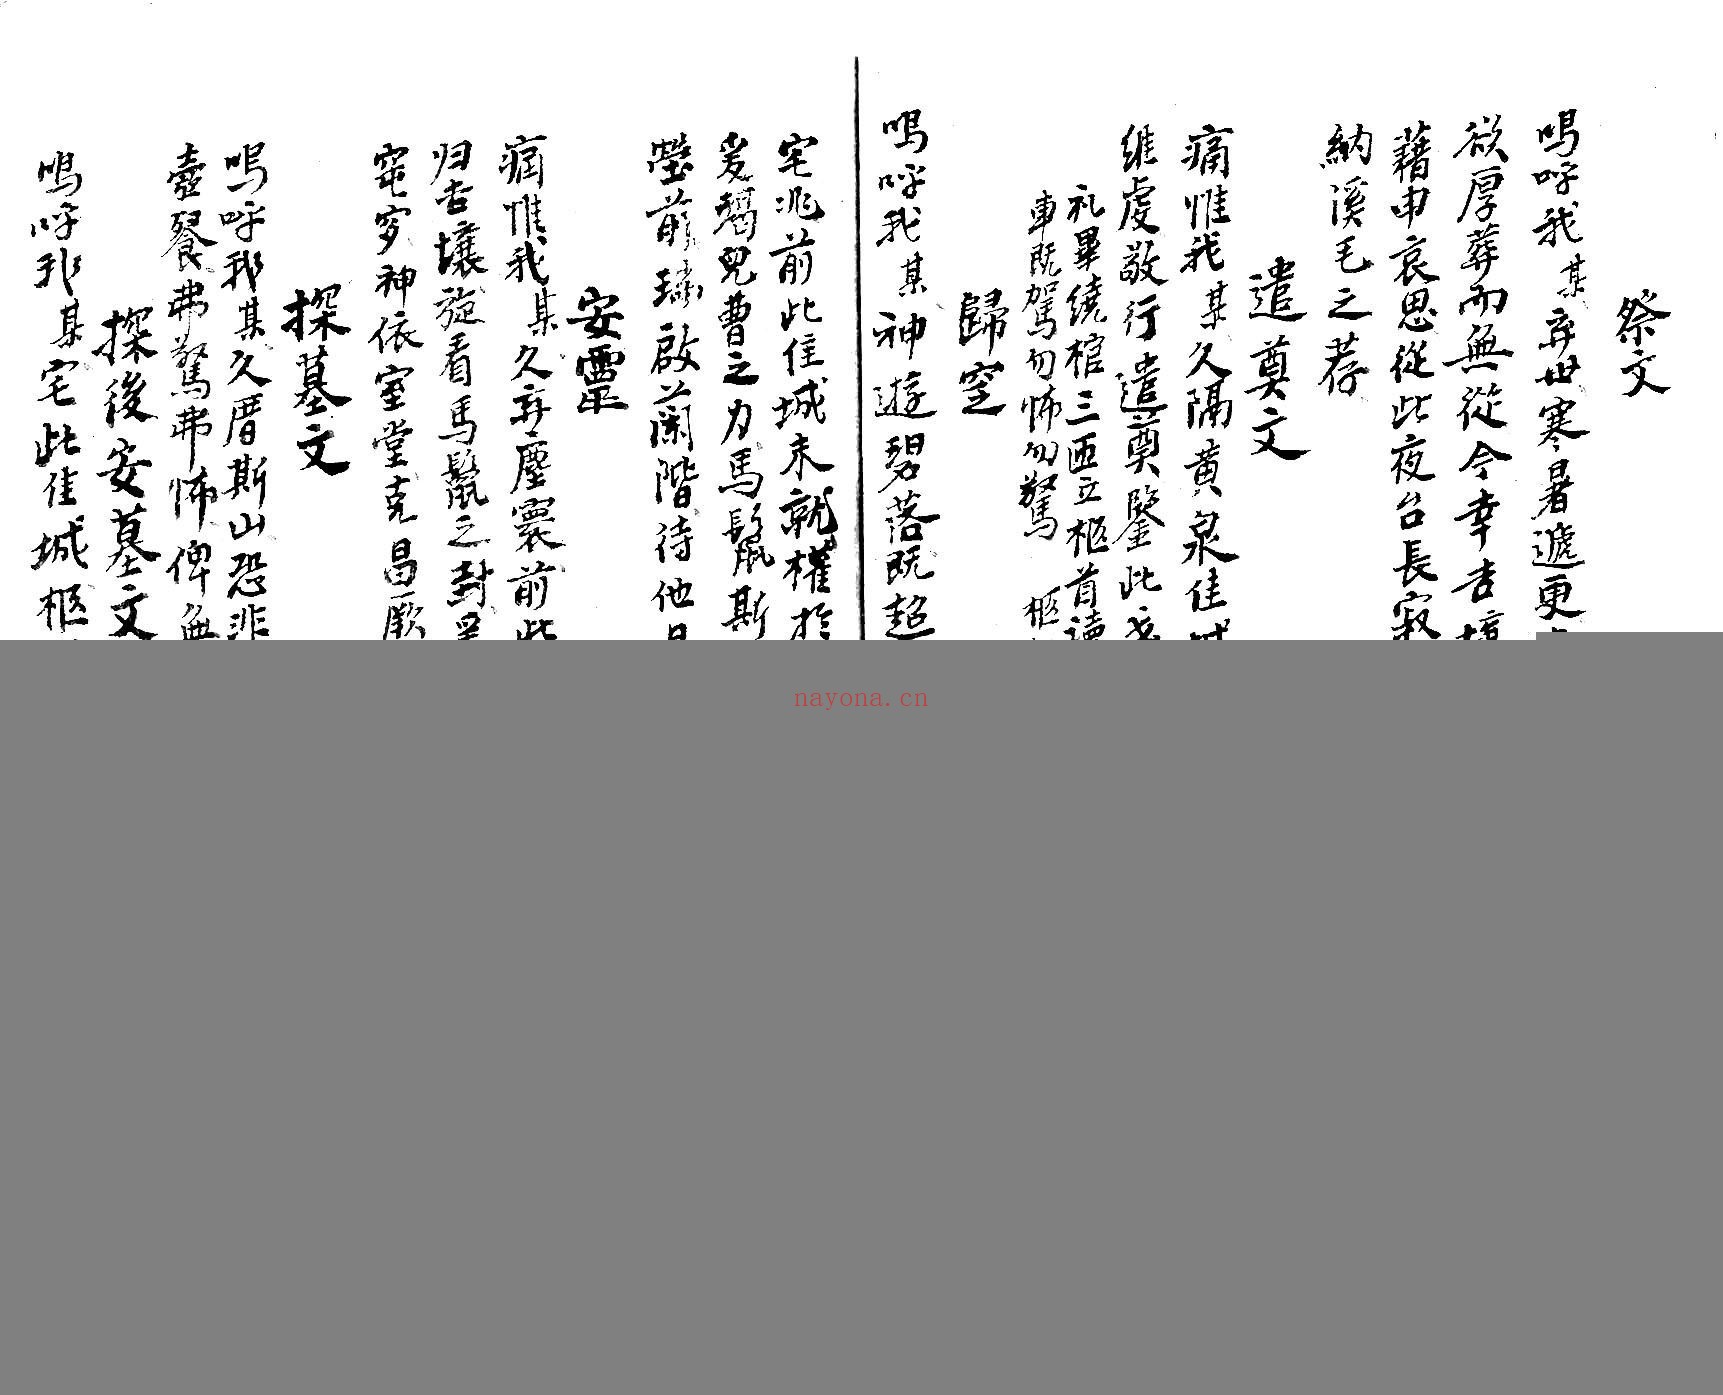 祭文
嗚呼我某弃世寒暑遞更
欲厚葬而無從今幸吉
藉申哀思從此夜台長寂
納溪毛之荐
遣奠文
痛惟我某久隔黄泉佳城
維虔敬行遣奠鑒此
礼畢繞棺三匝立柩首讀
車既駕勿怖勿驚 柩
歸窆
嗚呼我某神遊碧落既超
宅兆前此佳城未就權於
爰竭兒曹之力馬鬛斯
塋前 啟蘭階待他日
安靈
痛惟我某久弃塵寰前此
归吉壤旋看馬鬛之封
窀穸神依室堂克昌厥
探墓文
嗚呼我某久厝斯山恐非
壺餐弗驚弗怖俾無
探後安墓文
嗚呼我某宅此佳城柩
nayona.cn